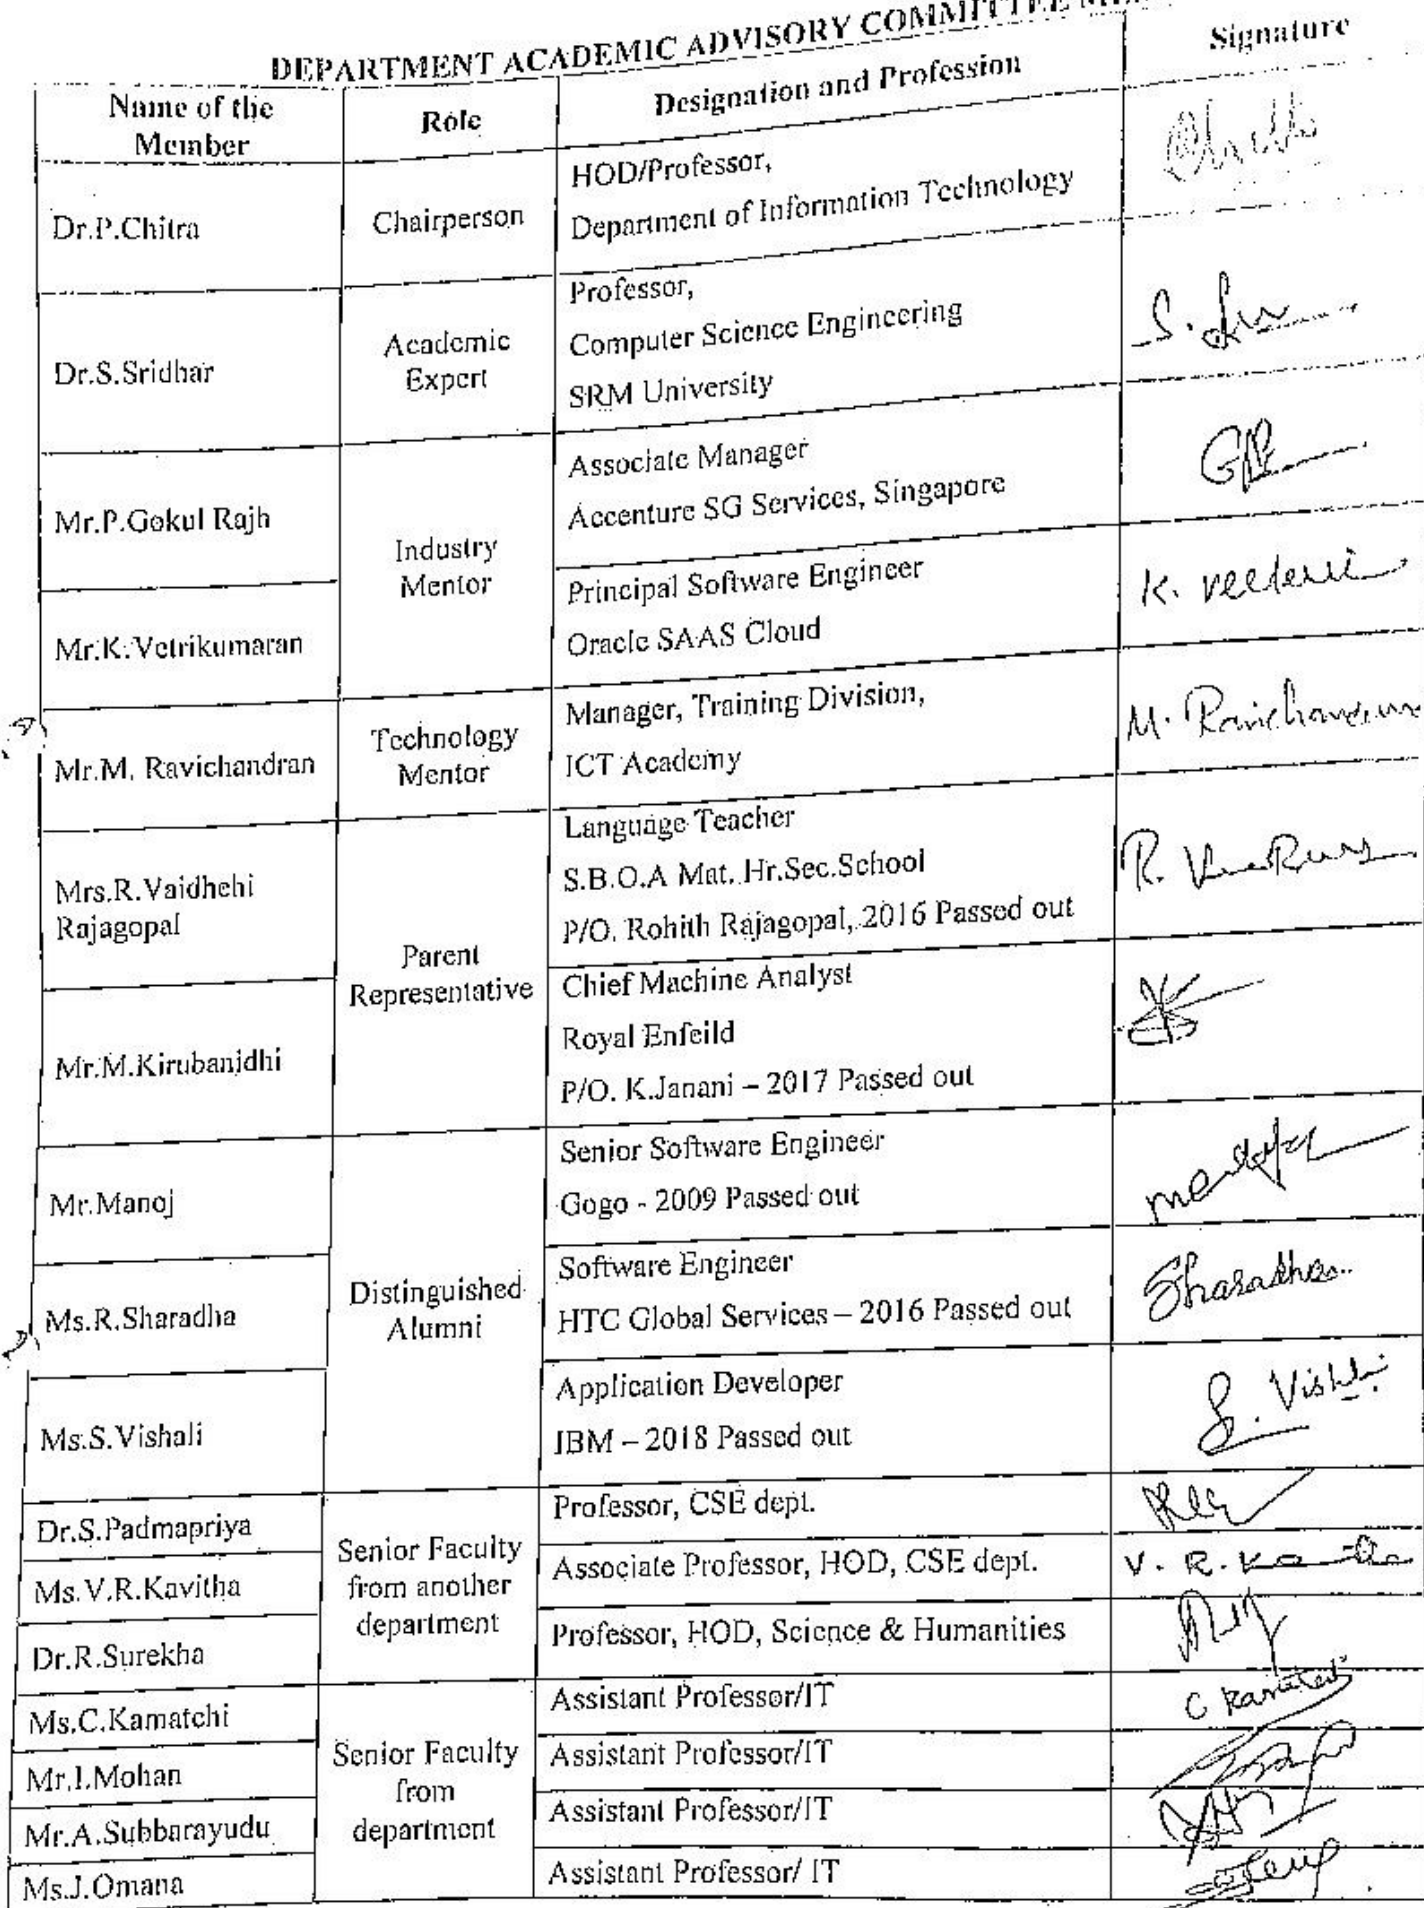 DEPARTMENT ACADEMIC ADVISORY COMMITTEE
Name of the Member | Role | Designation and Profession | Signature
Dr.P.Chitra | Chairperson | HOD/Professor,
Department of Information Technology
Dr.S.Sridhar | Academic Expert | Professor,
Computer Science Engineering
SRM University
Mr.P.Gokul Rajh | Industry Mentor | Associate Manager
Accenture SG Services, Singapore
Mr.K.Vetrikumaran | Principal Software Engineer
Oracle SAAS Cloud | K.
Mr.M. Ravichandran | Technology Mentor | Manager, Training Division,
ICT Academy | M. Ravichandran
Mrs.R.Vaidhehi Rajagopal | Parent Representative | Language Teacher
S.B.O.A Mat. Hr.Sec.School
P/O. Rohith Rajagopal, 2016 Passed out | R.
Mr.M.Kirubanidhi | Chief Machine Analyst
Royal Enfeild
P/O. K.Janani – 2017 Passed out
Mr.Manoj | Distinguished Alumni | Senior Software Engineer
Gogo - 2009 Passed out
Ms.R.Sharadha | Software Engineer
HTC Global Services – 2016 Passed out | Sharadha
Ms.S.Vishali | Application Developer
IBM – 2018 Passed out | S. Vishali
Dr.S.Padmapriya | Senior Faculty from another department | Professor, CSE dept.
Ms.V.R.Kavitha | Associate Professor, HOD, CSE dept. | V. R. Kavitha
Dr.R.Surekha | Professor, HOD, Science & Humanities
Ms.C.Kamatchi | Senior Faculty from department | Assistant Professor/IT | C Kamatchi
Mr.I.Mohan | Assistant Professor/IT
Mr.A.Subbarayudu | Assistant Professor/IT
Ms.J.Omana | Assistant Professor/ IT